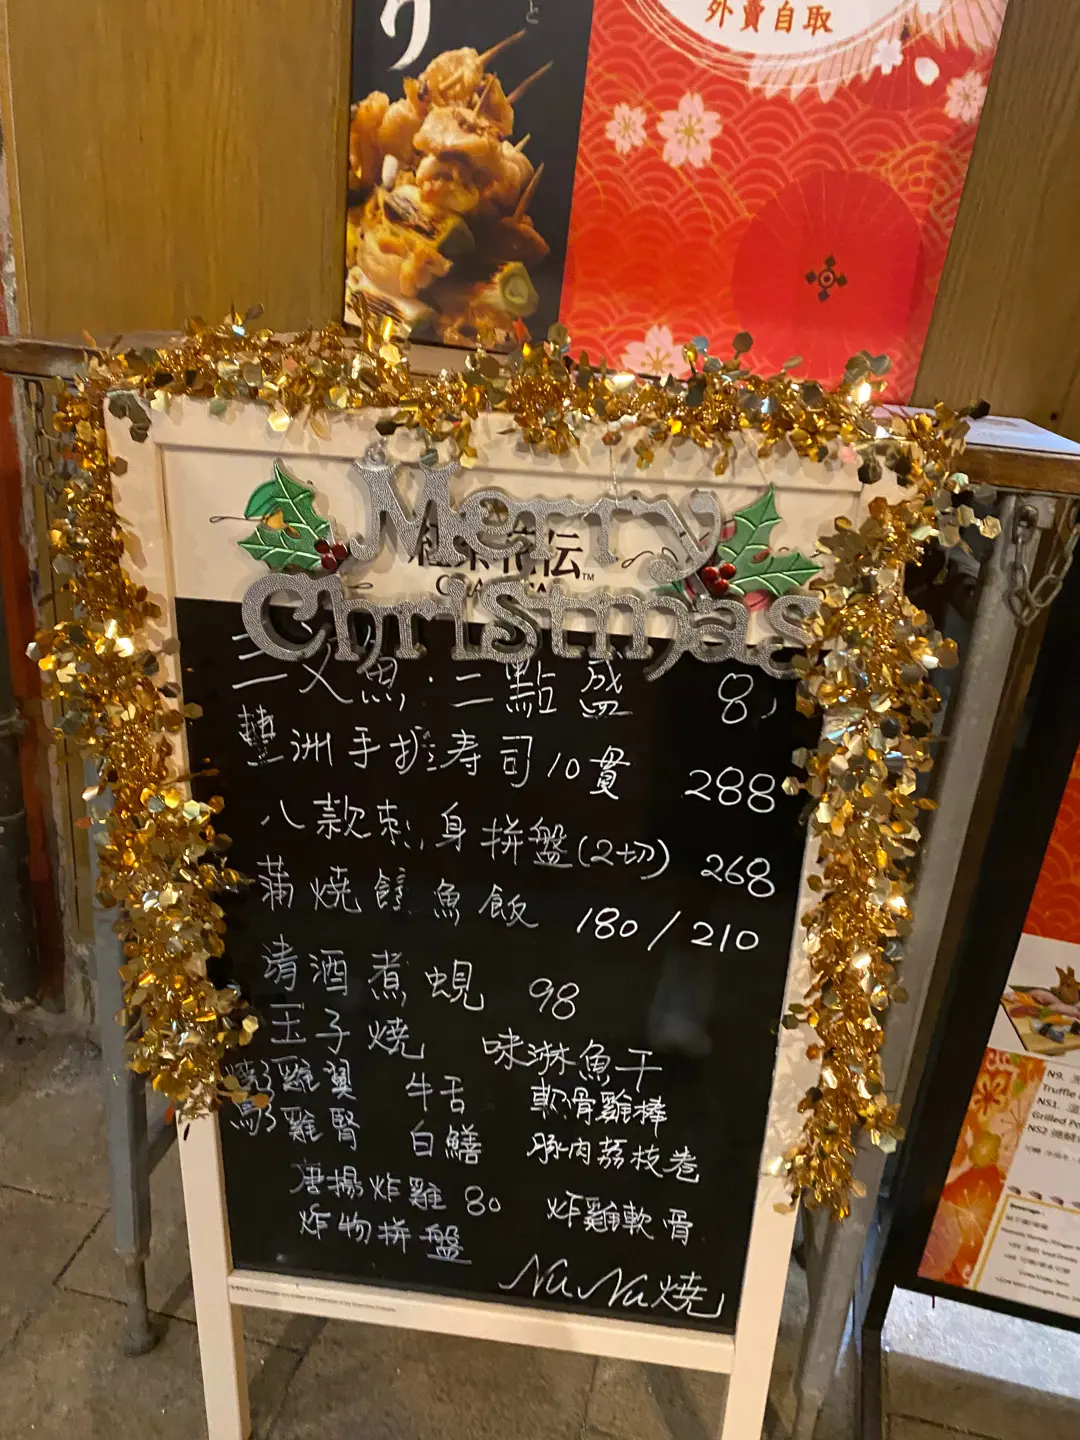 り
と
外賣自取
Merry
Christmas
伝
三文魚:二點盛 8
豐洲手握寿司10貫 288
八款刺身拼盤(2切) 268
蒲燒鰻魚飯 180/210
清酒煮蜆 98
玉子燒 味淋魚干
燒雞翼 牛舌 軟骨雞棒
雞腎 白鱔 豚肉荔枝卷
唐揚炸雞 80 炸雞軟骨
炸物拼盤
NuNu燒
N9.
Truffle
NS1.
Grilled Po
NS2
Beverage: